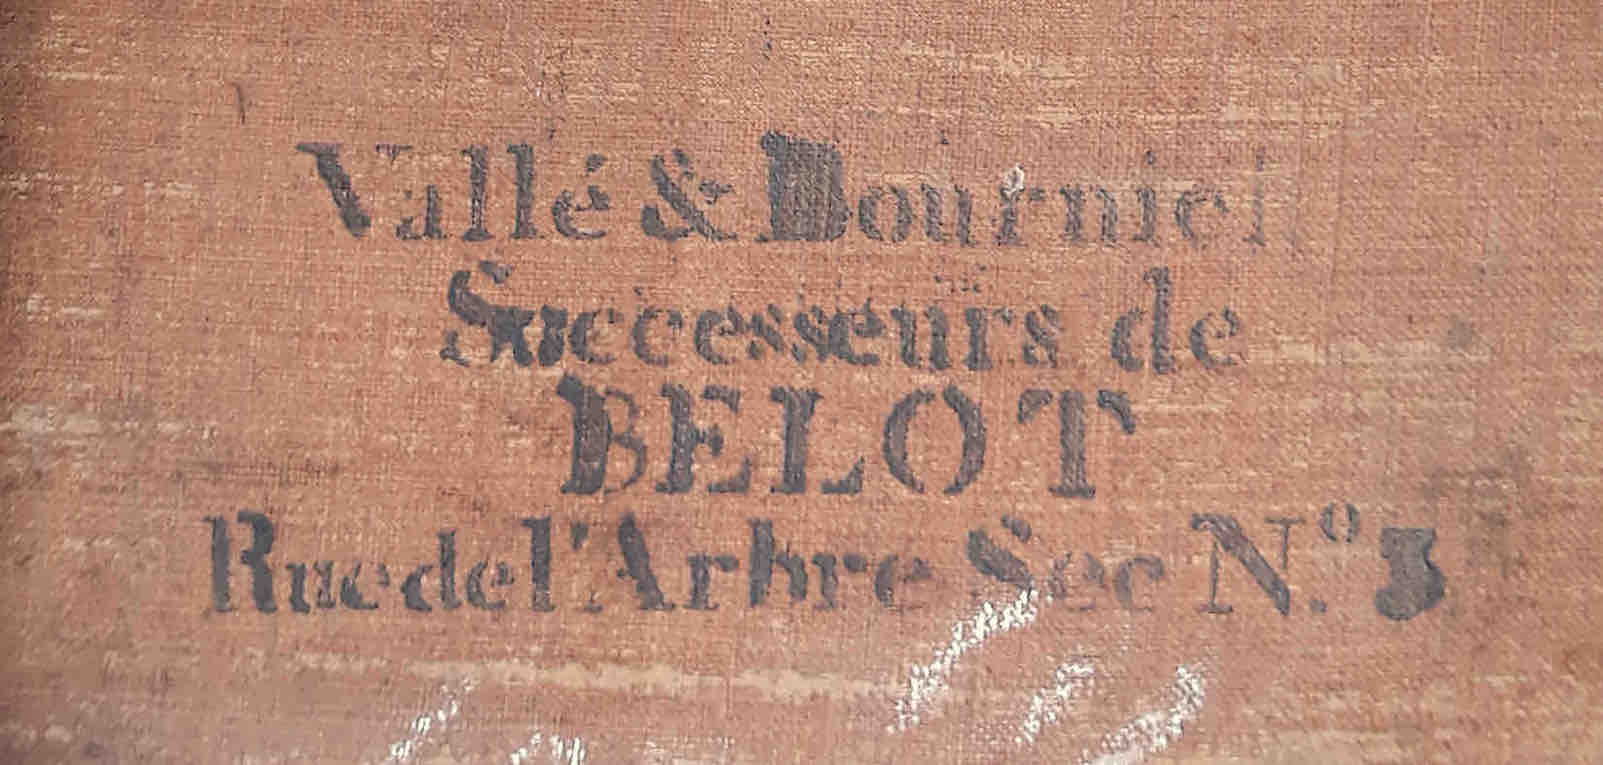 Vallé & Bourniel
Successeurs de
BELOT
Rue de l'Arbre Sec N.º 3